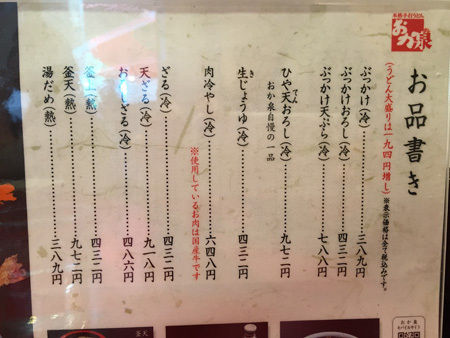 本格手打うどん
おか泉
お品書き
(うどん大盛りは一九四円増し)
※表示価格は全て税込みです。
ぶっかけ(冷)……三八九円
ぶっかけおろし(冷)……四三二円
ぶっかけ天ぷら(冷)……七八八円
ひや天おろし(冷)……九七二円
てん
おか泉自慢の一品
生じょうゆ(冷)……四三二円
き
肉冷やし(冷)……六四八円
※使用しているお肉は国産牛です
ざる(冷)……四三二円
天ざる(冷)……九一八円
おろしざる(冷)……四八六円
釜上(熱)……四三二円
釜天(熱)……九七二円
湯だめ(熱)……三八九円
おか泉
モバイルサイト
釜天